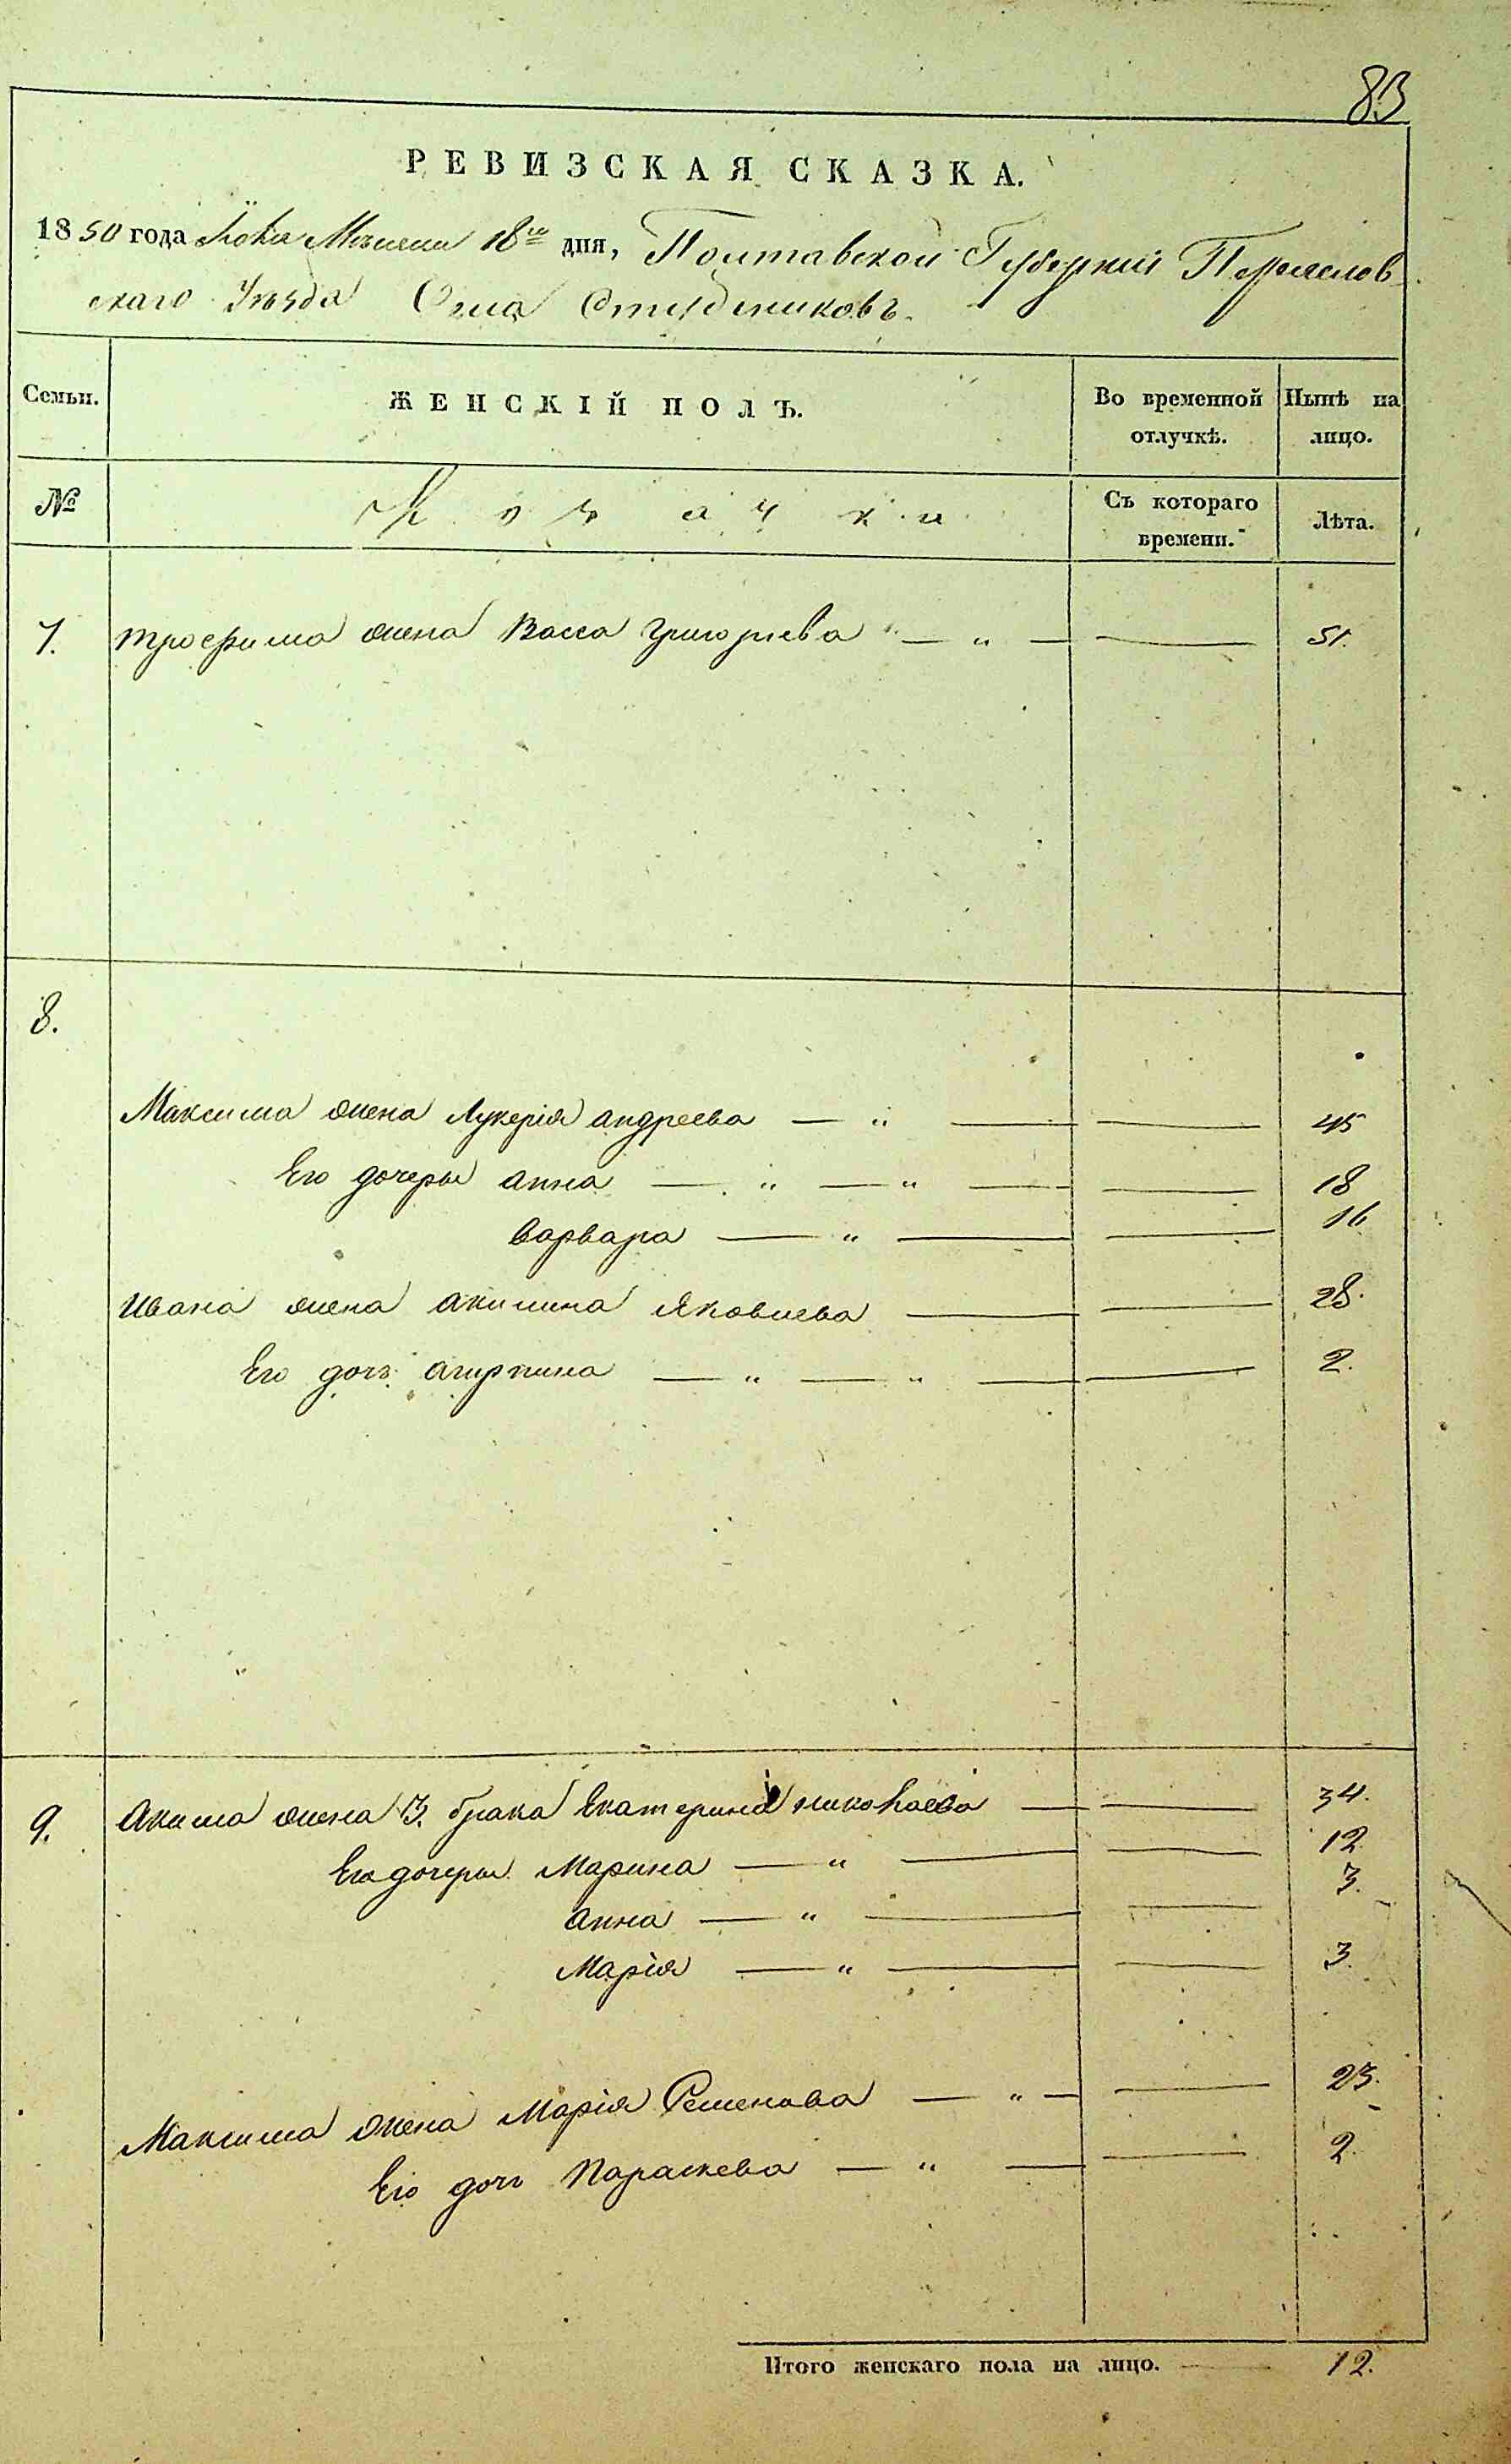 83
РЕВИЗСКАЯ СКАЗКА.
1850 года Іюня Месяца 18го дня, Полтавской Губерніи Переяслов
скаго Уѣзда Села Студениковъ.
Семьи. ЖЕНСКІЙ ПОЛЪ. Во временной отлучкѣ. Нынѣ на лицо.
№ Козачки Съ котораго времени. Лѣта.
7. трофима жена Васса григориева — " — — 51.
8.
Максима жена Лукерія андреева — " — — 45
Его дочеры анна — " — " — — 18
варвара — " — — 16
Ивана жена акилина Яковлева — — 28.
Его дочь агирпина — " — " — — 2.
9. Акима жена 3. брака Екатерина николаева — — 34.
Его дочеры Марина — " — — 12.
анна — " — — 3.
Марія — " — — 3.
Максима жена Марія Семенова — " — — 23.
Его дочь Параскева — " — — 2.
Итого женскаго пола на лицо. — 12.